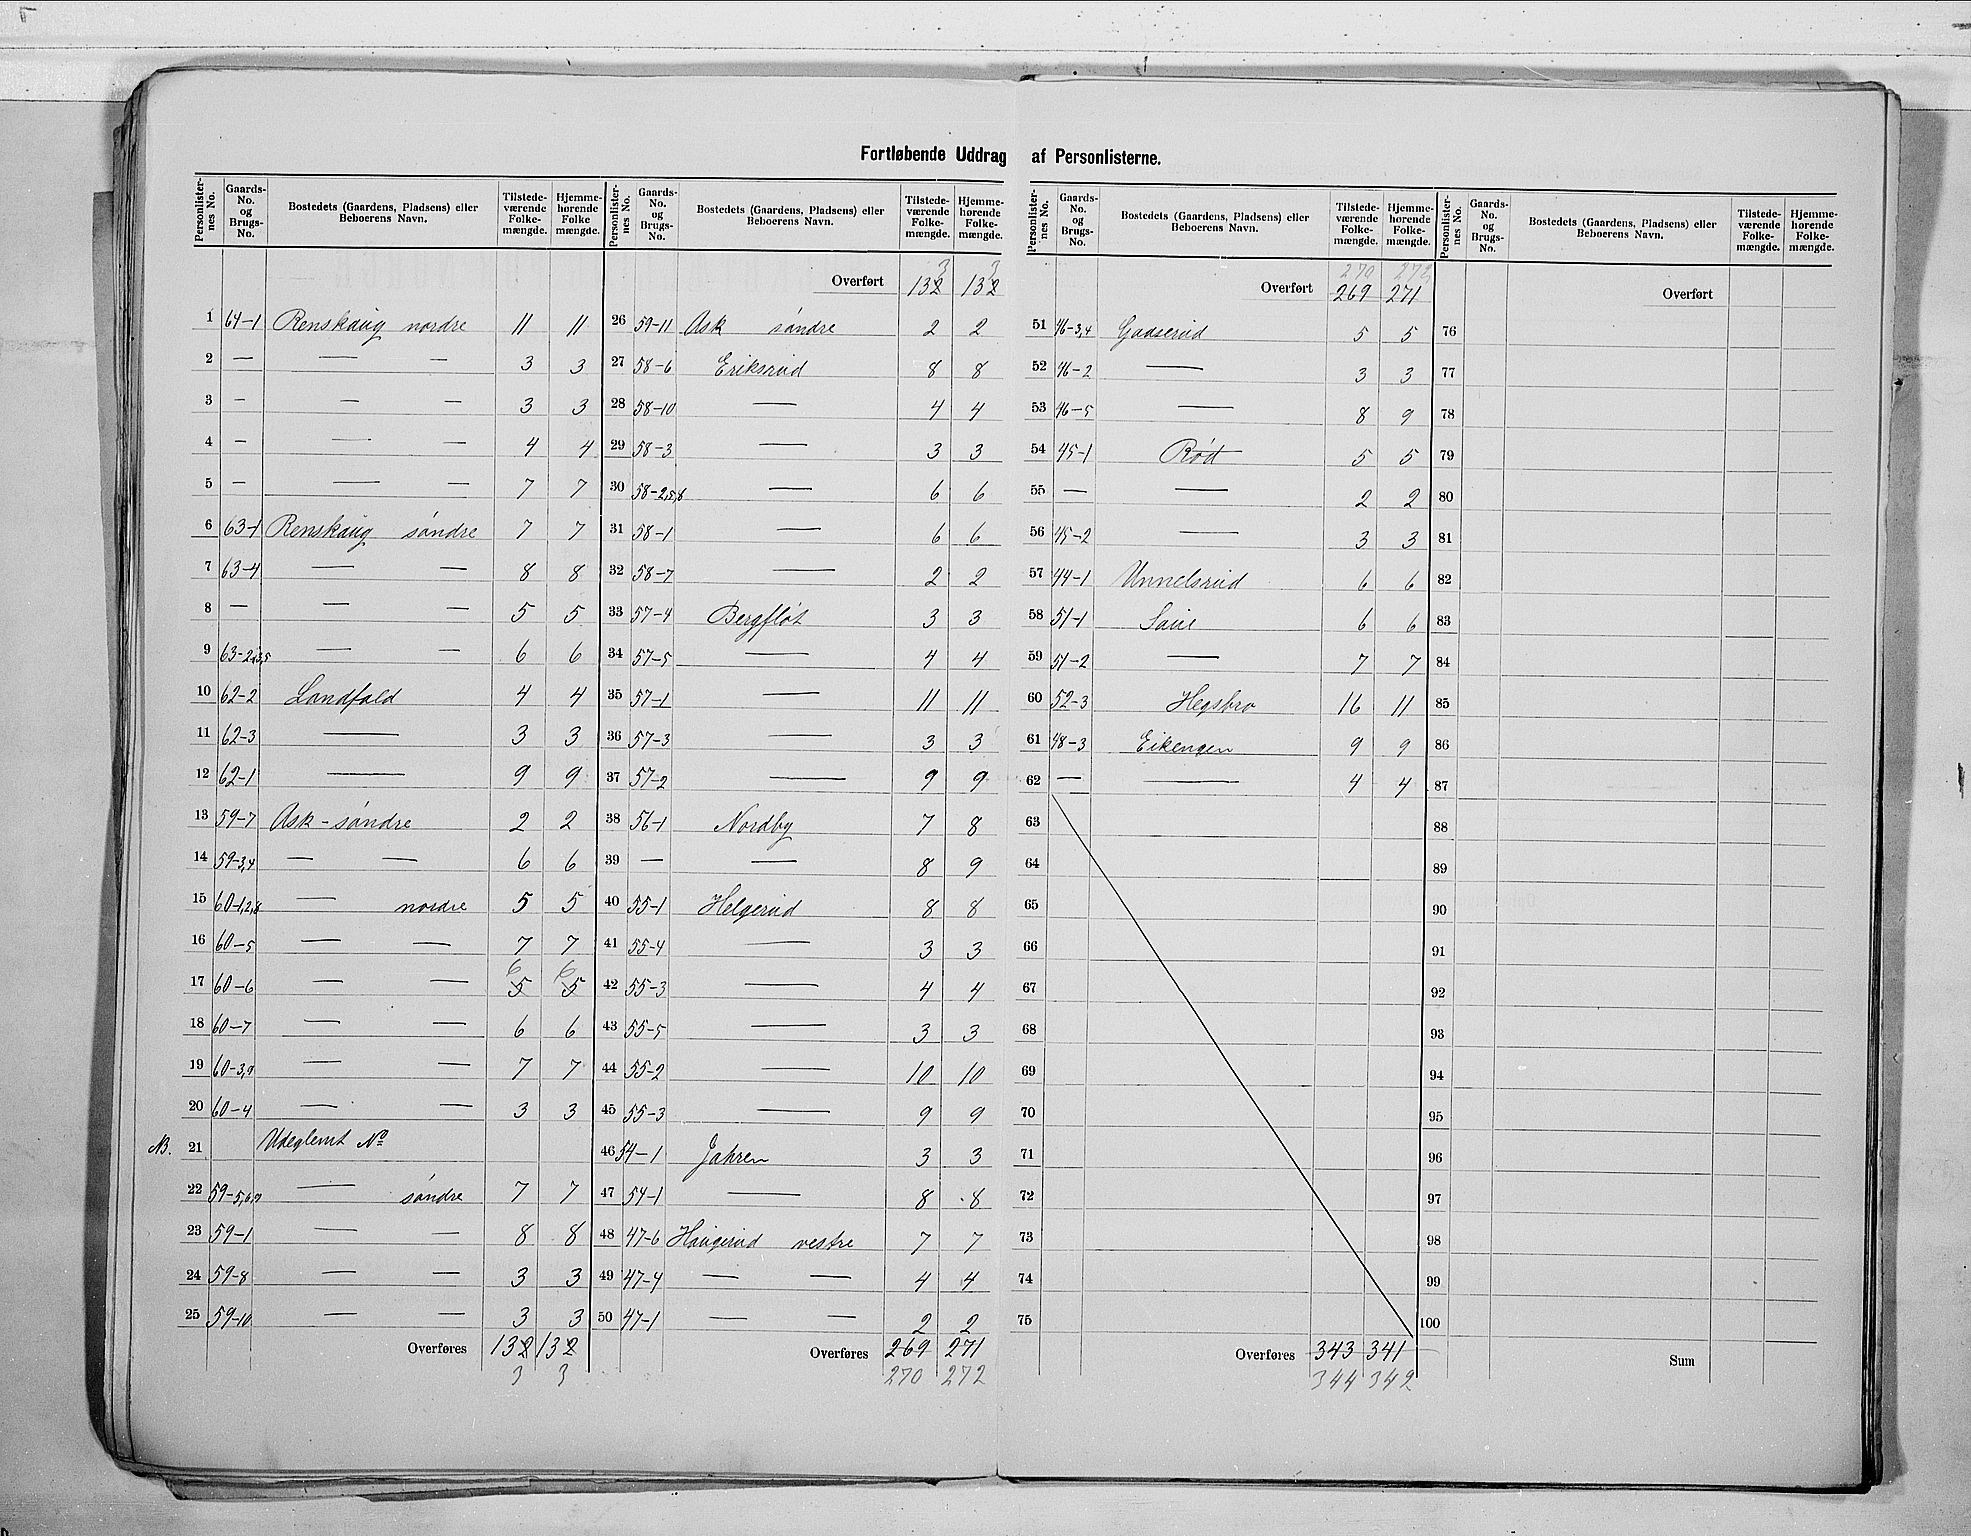 Fortløbende Uddrag af Personlisterne.
Personlisternes No. Gaards-No. og Brugs-No. Bostedets (Gaardens, Pladsens) eller Beboerens Navn. Tilstedeværende Folkemængde. Hjemmehørende Folkemængde.
1 64-1 Renskaug nordre 11 11
2 — — — 3 3
3 — — — 3 3
4 — — — 4 4
5 — — — 7 7
6 63-1 Renskaug søndre 7 7
7 63-4 — — 8 8
8 — — — 5 5
9 63-2,3,5 — — 6 6
10 62-2 Landfald 4 4
11 62-3 — 3 3
12 62-1 — 9 9
13 59-7 Ask-søndre 2 2
14 59-3,4 — — 6 6
15 60-1,2,8 — nordre 5 5
16 60-5 — — 7 7
17 60-6 — — 5 6 5 6
18 60-7 — — 6 6
19 60-3,9 — — 7 7
20 60-4 — — 3 3
NB. 21 Udeglemt No
22 59-5,6,9 — søndre 7 7
23 59-1 — — 8 8
24 59-8 — — 3 3
25 59-10 — — 3 3
Overføres 132 132
3 3
Personlisternes No. Gaards-No. og Brugs-No. Bostedets (Gaardens, Pladsens) eller Beboerens Navn. Tilstedeværende Folkemængde. Hjemmehørende Folkemængde.
3 3
Overført 132 132
26 59-11 Ask søndre 2 2
27 58-6 Eriksrud 8 8
28 58-10 — 4 4
29 58-3 — 3 3
30 58-2,5,8 — 6 6
31 58-1 — 6 6
32 58-7 — 2 2
33 57-4 Bergfløt 3 3
34 57-5 — 4 4
35 57-1 — 11 11
36 57-3 — 3 3
37 57-2 — 9 9
38 56-1 Nordby 7 8
39 — — 8 9
40 55-1 Helgerud 8 8
41 55-4 — 3 3
42 55-3 — 4 4
43 55-5 — 3 3
44 55-2 — 10 10
45 55-3 — 9 9
46 54-1 Jahren 3 3
47 54-1 — 8 8
48 47-6 Haugerud vestre 7 7
49 47-4 — — 4 4
50 47-1 — — 2 2
Overføres 269 271
270 272
Personlisternes No. Gaards-No. og Brugs-No. Bostedets (Gaardens, Pladsens) eller Beboerens Navn. Tilstedeværende Folkemængde. Hjemmehørende Folkemængde.
270 272
Overført 269 271
51 46-3,4 Gaaserud 5 5
52 46-2 — 3 3
53 46-5 — 8 9
54 45-1 Rød 5 5
55 — — 2 2
56 45-2 — 3 3
57 44-1 Unnelsrud 6 6
58 51-1 6 6
59 51-2 — 7 7
60 52-3 Hegsbro 16 11
61 48-3 Eikengen 9 9
62 — — 4 4
63
64
65
66
67
68
69
70
71
72
73
74
75
Overføres 343 341
344 342
Personlisternes No. Gaards-No. og Brugs-No. Bostedets (Gaardens, Pladsens) eller Beboerens Navn. Tilstedeværende Folkemængde. Hjemmehørende Folkemængde.
Overført
76
77
78
79
80
81
82
83
84
85
86
87
88
89
90
91
92
93
94
95
96
97
98
99
100
Sum